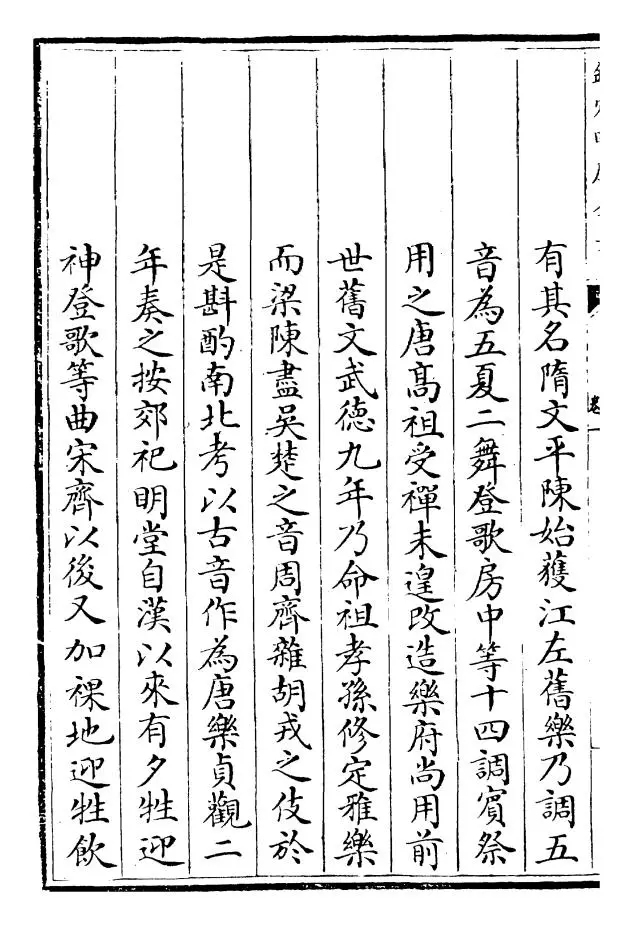 有其名隋文平陳始獲江左舊樂乃調五
音為五夏二舞登歌房中等十四調賓祭
用之唐髙祖受禪未遑改造樂府尚用前
世舊文武德九年乃命祖孝孫修定雅樂
而梁陳盡吳楚之音周齊雜胡戎之伎於
是斟酌南北考以古音作為唐樂貞觀二
年奏之按郊祀明堂自漢以來有夕牲迎
神登歌等曲宋齊以後又加祼地迎牲飲